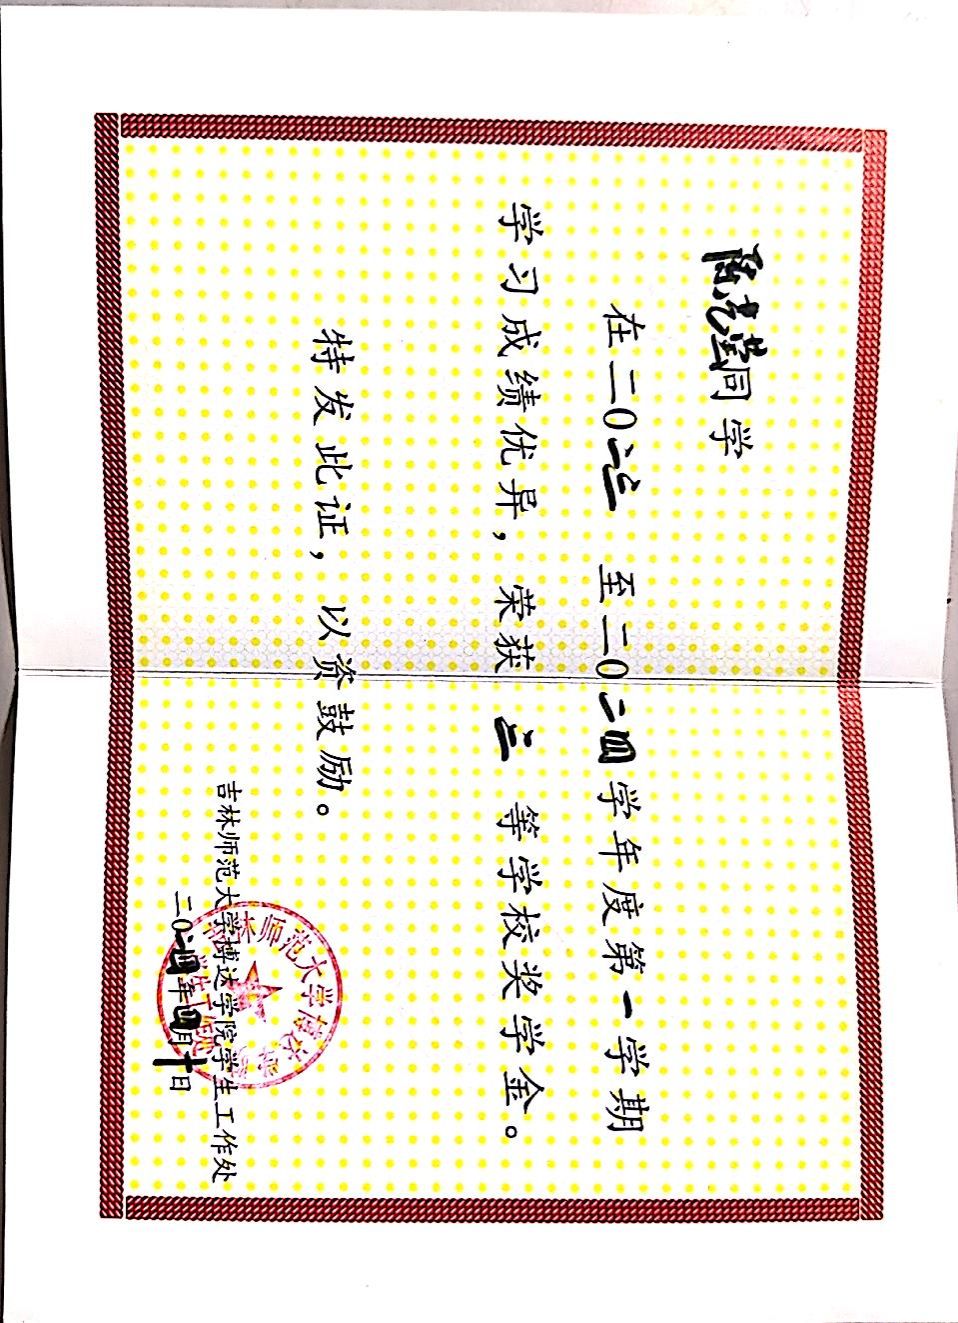 同学
在二〇二三 至二〇二四学年度第一学期
学习成绩优异，荣获 三 等学校奖学金。
特发此证，以资鼓励。
吉林师范大学博达学院学生工作处
二〇二四年四月十日
吉林师范大学博达学院